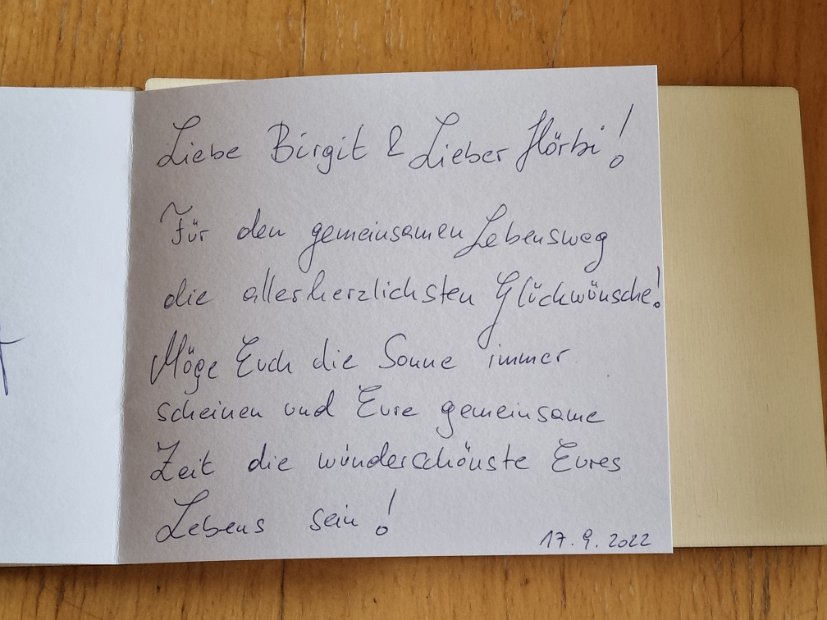 Liebe Birgit & Lieber Hörbi!
Für den gemeinsamen Lebensweg
die allerherzlichsten Glückwünsche!
Möge Euch die Sonne immer
scheinen und Eure gemeinsame
Zeit die wünderschönste Eures
Lebens sein!
17.9.2022